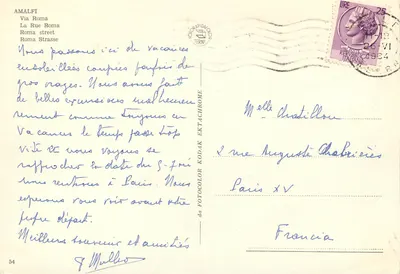 AMALFI
Via Roma
La Rue Roma
Roma street
Roma Strasse
Nous passons ici de vacances
ensoleillées coupées parfois de
gros orages. Nous avons fait
de belles excursions malheureu
sement comme toujours en
vacances le temps passe trop
vite et nous voyons se
rapprocher la date du
nous rentrons à Paris. Nous
espérons vous voir avant votre
propre départ.
Meilleurs souvenirs et amitiés
54
da FOTOCOLOR KODAK EKTACHROME
Melle Chatillon
2 rue Auguste Chabrières
Paris XV
Francia
25
VI
1964